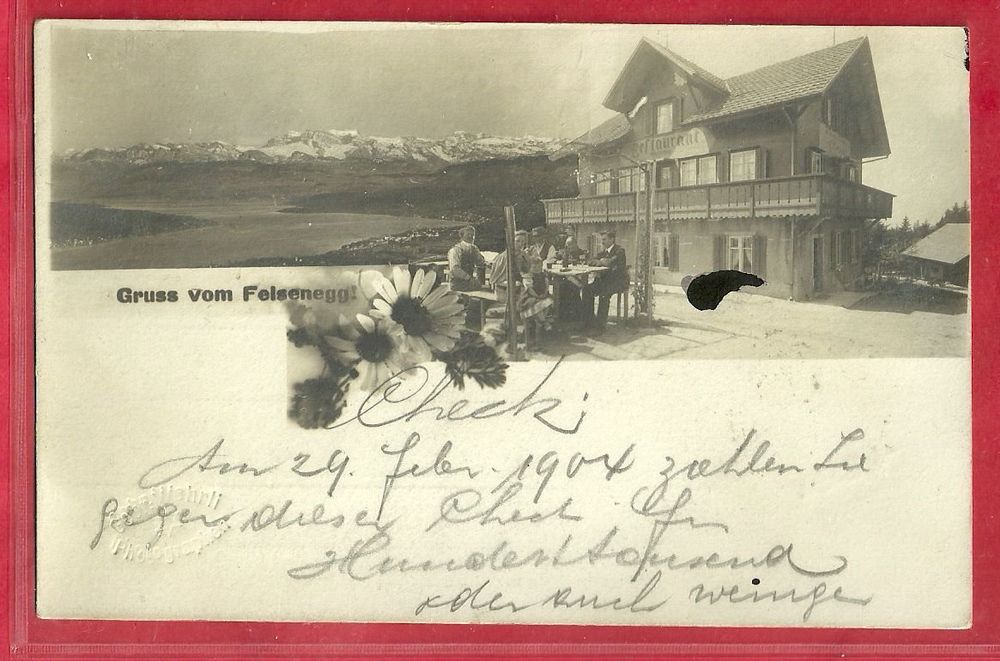 Restaurant
Gruss vom Felsenegg!
Check;
Am 29. Febr. 1904 zahlen Sie
gegen diesen Check Frs
Hunderttausend
oder auch weniger